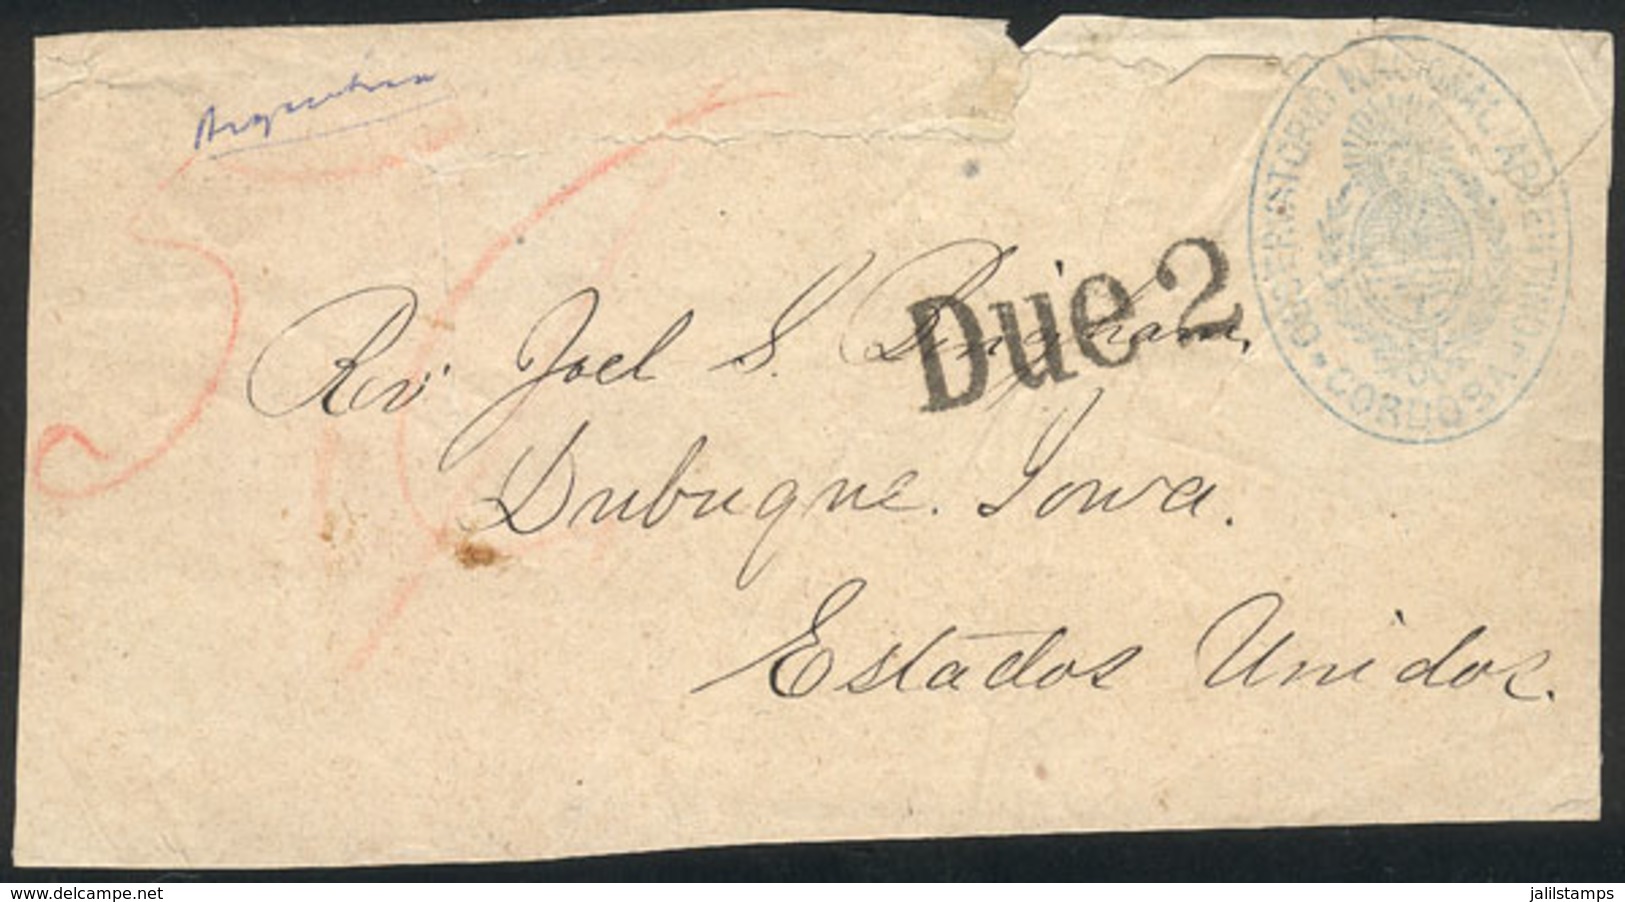 Argentina
OBSERVATORIO NACIONAL ARGENTINO
• CORDOBA •
Due 2
Rev Joel S. Bingham,
Dubuque. Iowa.
Estados Unidos.
www.delcampe.net
jalilstamps